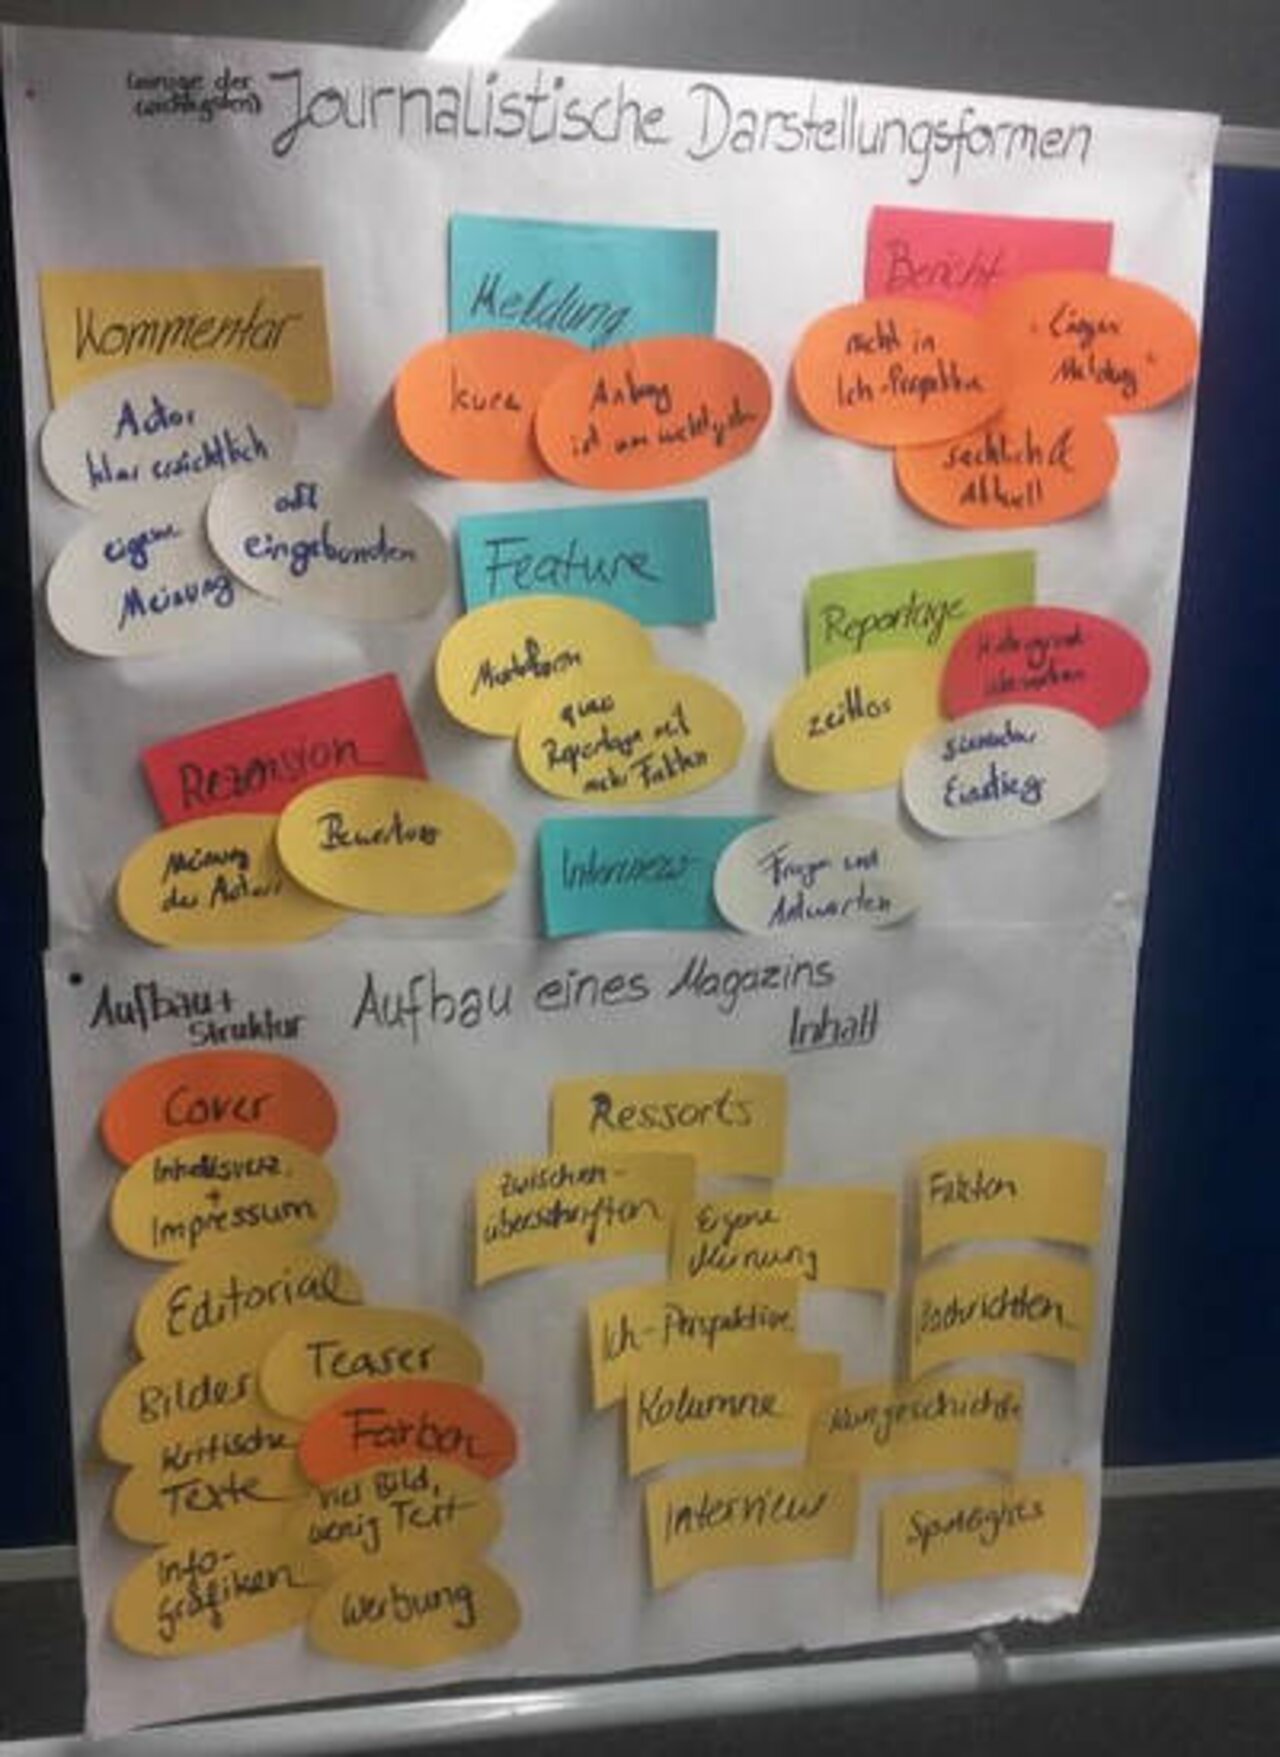 (einige der
wichtigsten)
Journalistische Darstellungsformen
Kommentar
Autor
klar ersichtlich
eigene
Meinung
oft
eingebunden
Meldung
kurz
Anfang
ist am wichtigsten
Bericht
nicht in
Ich-Perspektive
"längere
Meldung"
sachlich &
Aktuell
Feature
Mischform
quasi
Reportage mit
mehr Fakten
Reportage
zeitlos
Hintergrund
szenischer
Einstieg
Rezension
Meinung
des Autors
Bewertung
Interview
Fragen und
Antworten
Aufbau eines Magazins
Aufbau +
Struktur
Cover
Inhaltsverz.
+
Impressum
Editorial
Teaser
Bilder
Farben
kritische
Texte
viel Bild,
wenig Text
Info-
grafiken
Werbung
Inhalt
Ressorts
Zwischen-
überschriften
Eigene
Meinung
Fakten
Ich-Perspektive
Nachrichten
Kolumne
Kurzgeschichte
Interview